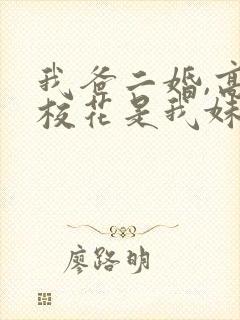 我爸二婚,高
校花是我妹
廖路明